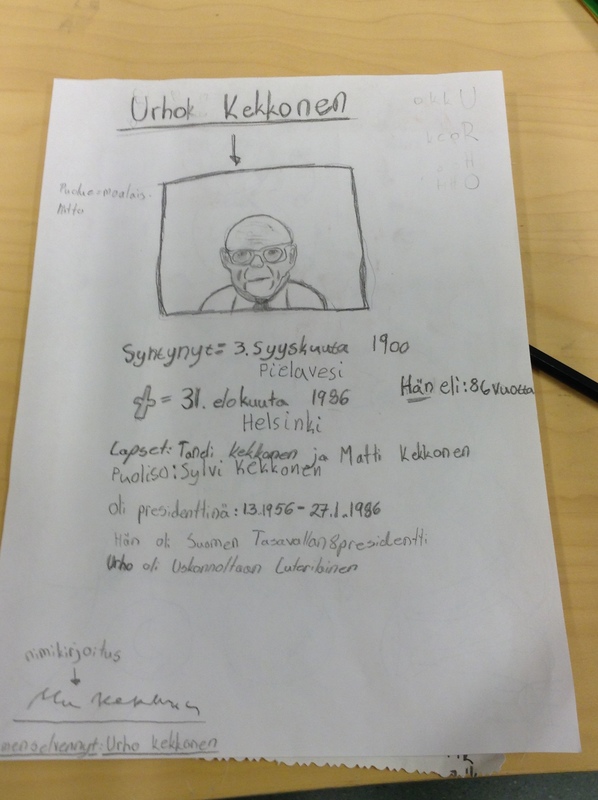 Urhok Kekkonen
Puolue=maalais-
liitto
Syntynyt= 3. Syyskuuta 1900
Pielavesi
= 31. elokuuta 1986
Hän eli: 86 vuotta
Helsinki
Lapset: Taneli Kekkonen ja Matti Kekkonen
Puoliso: Sylvi Kekkonen
Oli presidenttinä: 1.3.1956 - 27.1.1986
Hän oli Suomen Tasavallan 8 presidentti
Urho oli Uskonnoltaan Luterilainen
nimikirjoitus
Kekkonen
Urho Kekkonen